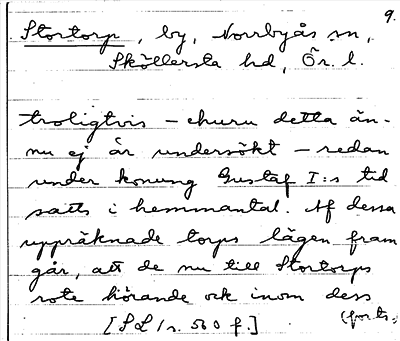 9.
Stortorp, by, Norrbyås sn,
Sköllersta hd, Ör. l.
troligtvis - ehuru detta än-
nu ej är undersökt - redan
under konung Gustaf I:s tid
satts i hemmantal. Af dessa
uppräknade torps lägen fram
går, att de nu till Stortorps
rote hörande och inom dess
[SL 1 s. 560 f.] (forts.)